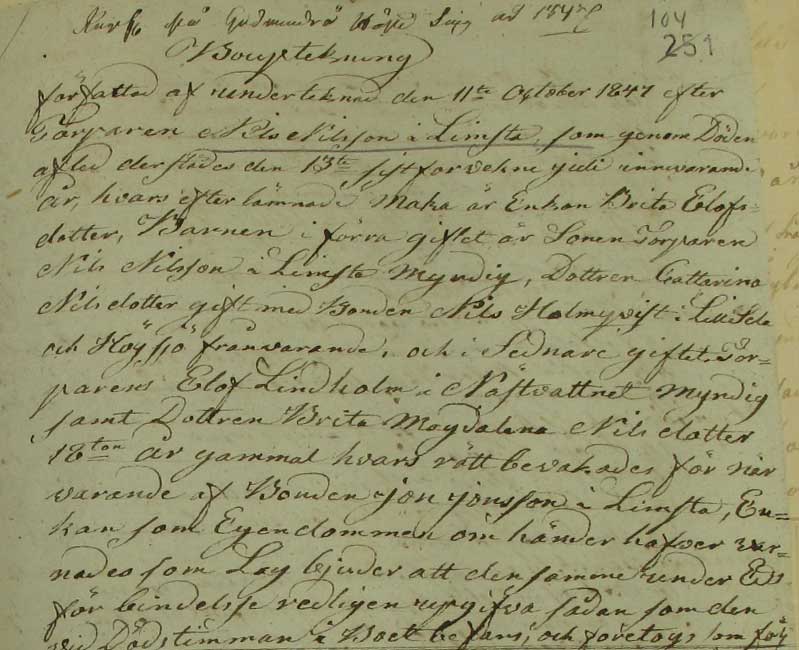 på Gudmundrå Höste Ting år 1847
104
251
Bouptekning
författad af underteknad den 11te October 1847 efter
Torparen Nils Nilsson i Limsta, som genom Döden
afled derstädes den 13te sistförvekne julii innevarande
år, hvars efterlämnade Maka är Enkan Brita Elofs-
dotter, Barnen i förra giftet är Sonen Torparen
Nils Nilsson i Limsta Myndig, Dottren Cattarina
Nilsdotter gift med Bonden Nils Holmqvist i Lill Sela
och Höysjö frånvarande, och i Sednare giftet, Tor=
parens Elof Lindholm i Nästvattnet Myndig
samt Dottren Brita Magdalena Nilsdotter
18ton år gammal hvars rätt bevakades för när
varande af Bonden jon jonsson i Limsta, En=
kan som Egendommen om händer hafver var=
nades som Lag bjuder att den samme under Eds
för bindelsse redligen uppgifva sådan som den
vid Dödstimman i Boet befans, och företogs som föl